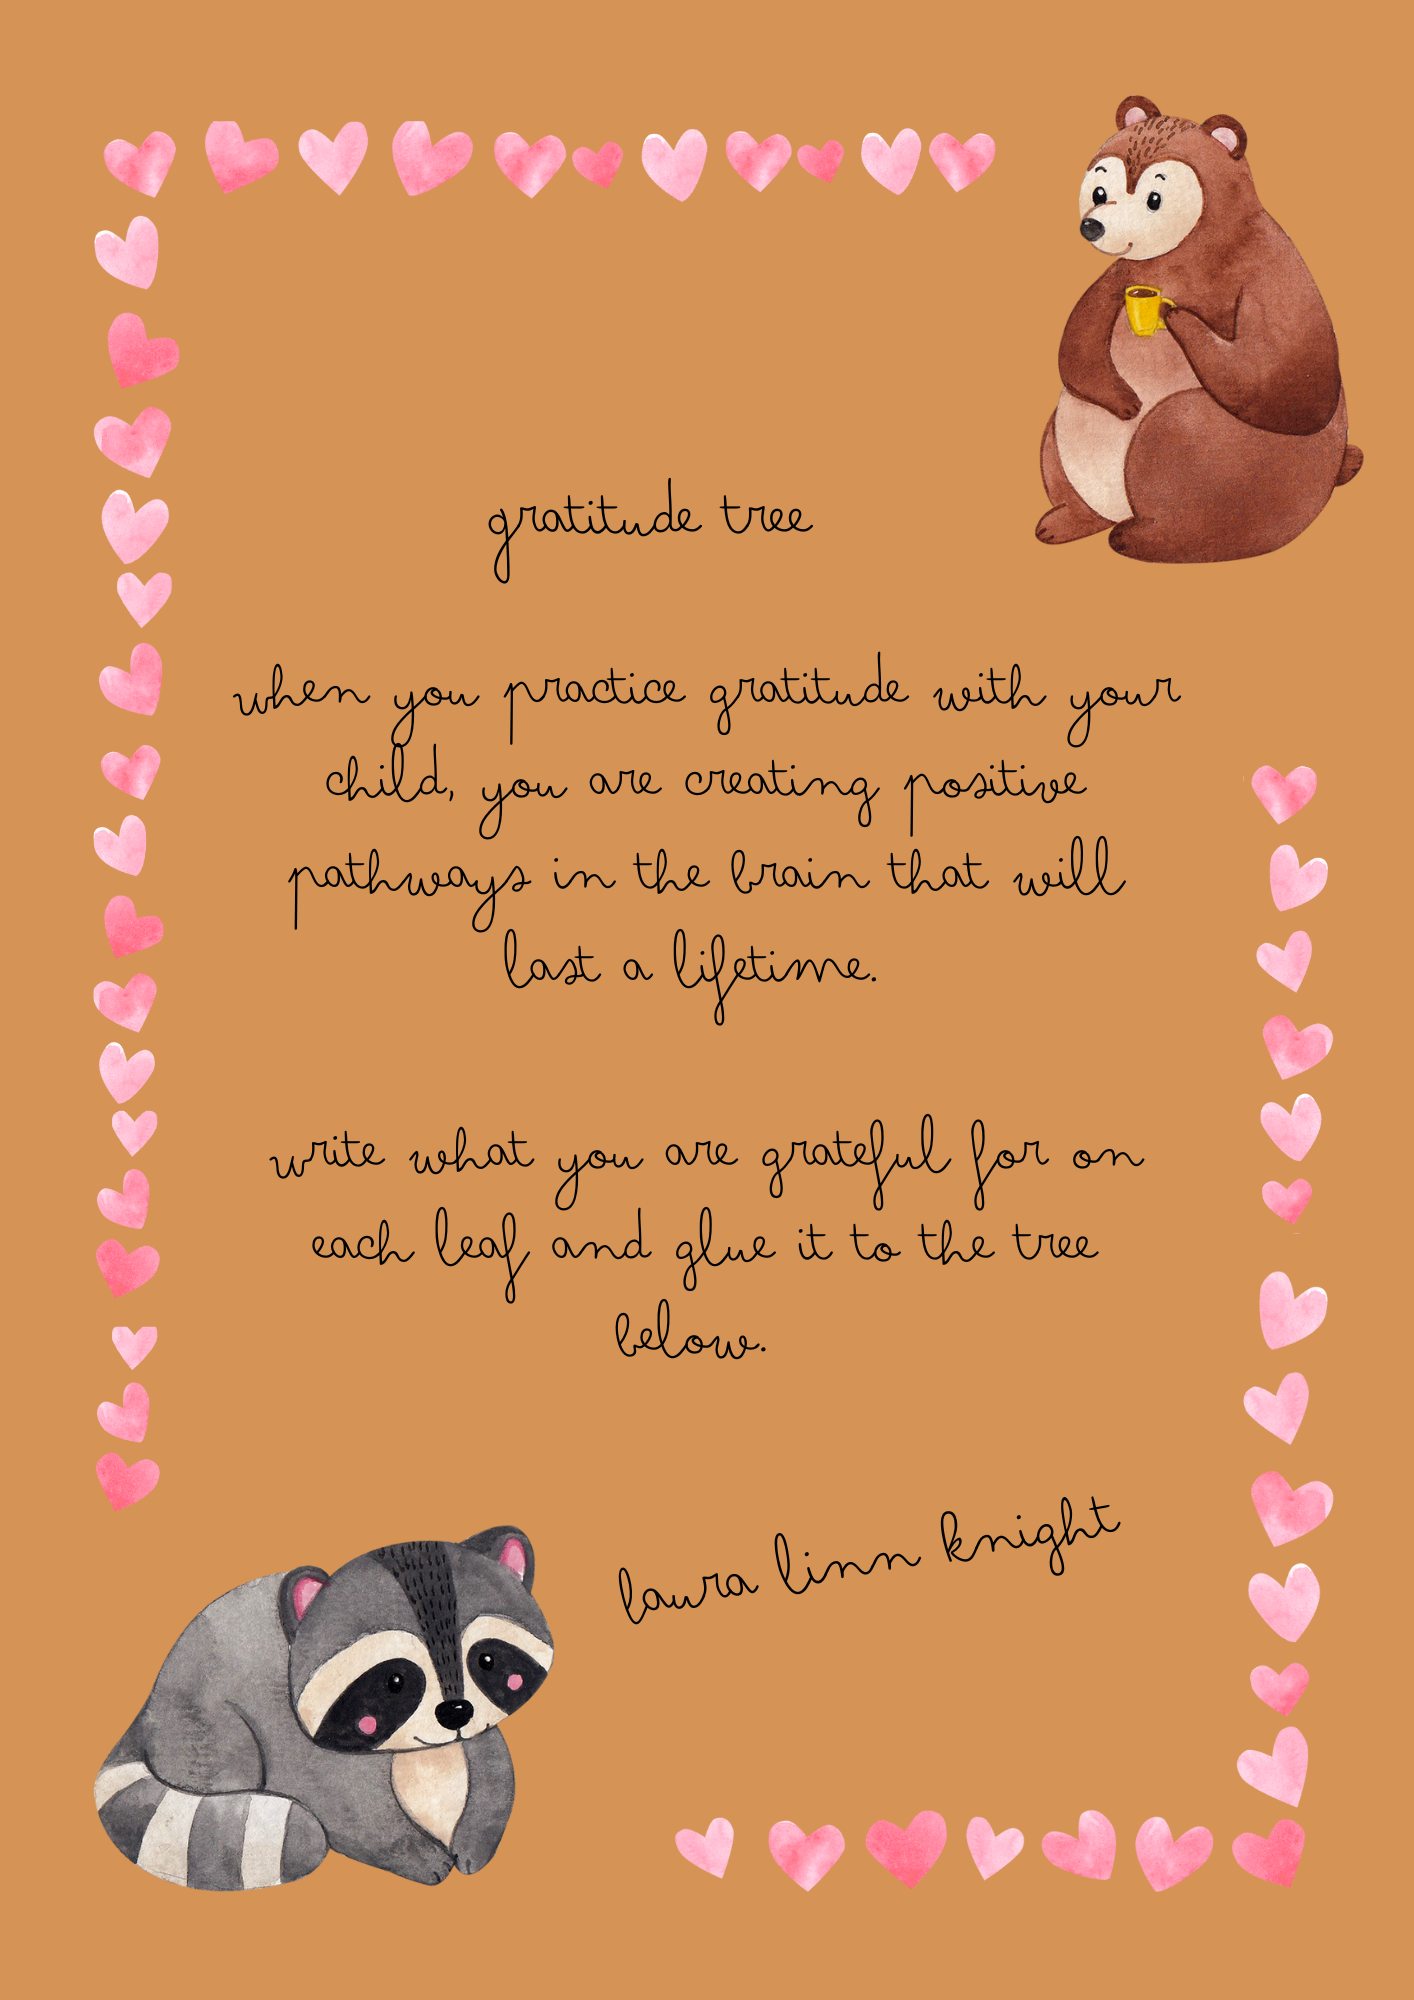 gratitude tree
when you practice gratitude with your
child, you are creating positive
pathways in the brain that will
last a lifetime.
write what you are grateful for on
each leaf and glue it to the tree
below.
laura linn knight